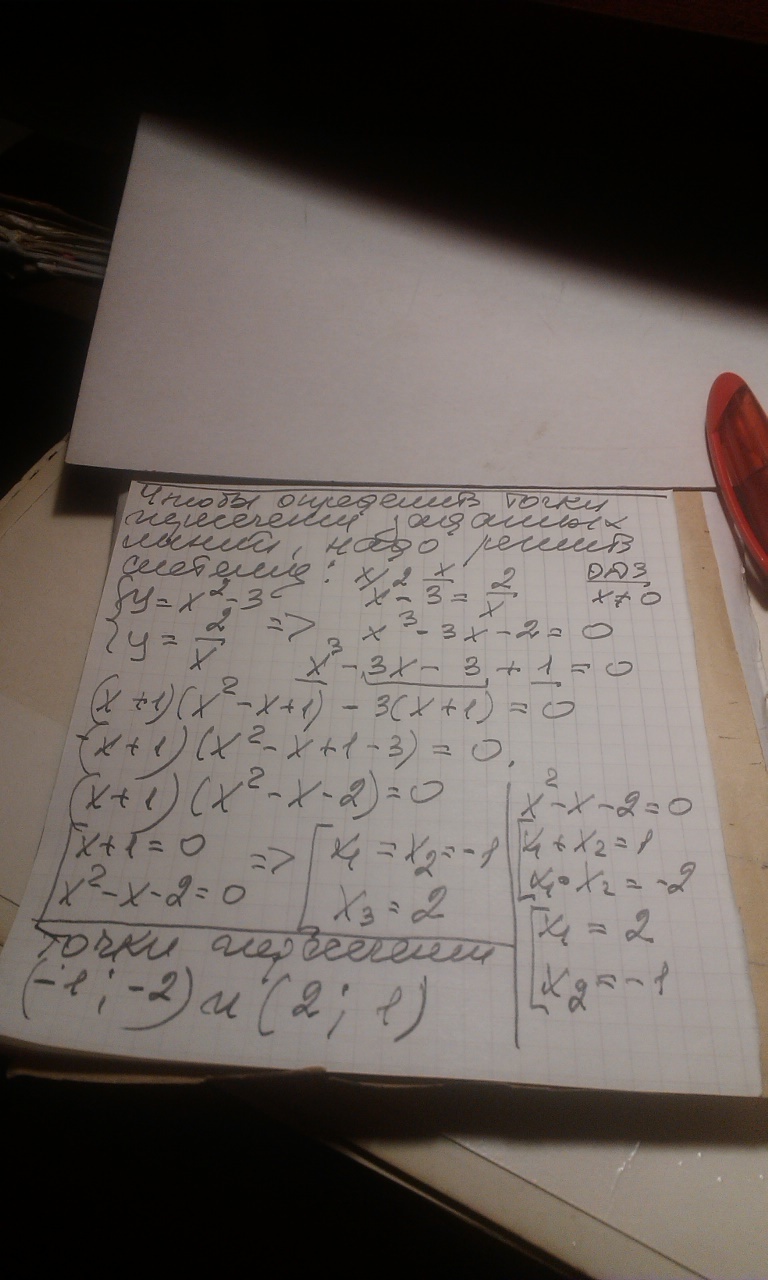 Чтобы определить точки
пересечения заданных
линий, надо решить
систему:
{y = x² - 3
{y = 2/x
=> x² - 3 = 2/x
ОДЗ
x ≠ 0
x³ - 3x - 2 = 0
x³ - 3x - 3 + 1 = 0
(x+1)(x² - x + 1) - 3(x+1) = 0
(x+1)(x² - x + 1 - 3) = 0.
(x+1)(x² - x - 2) = 0
[x + 1 = 0
x² - x - 2 = 0
=> [x₁ = x₂ = -1
x₃ = 2
x² - x - 2 = 0
[x₁ + x₂ = 1
x₁ • x₂ = -2
[x₁ = 2
x₂ = -1
точки пересечения
(-1; -2) и (2; 1)